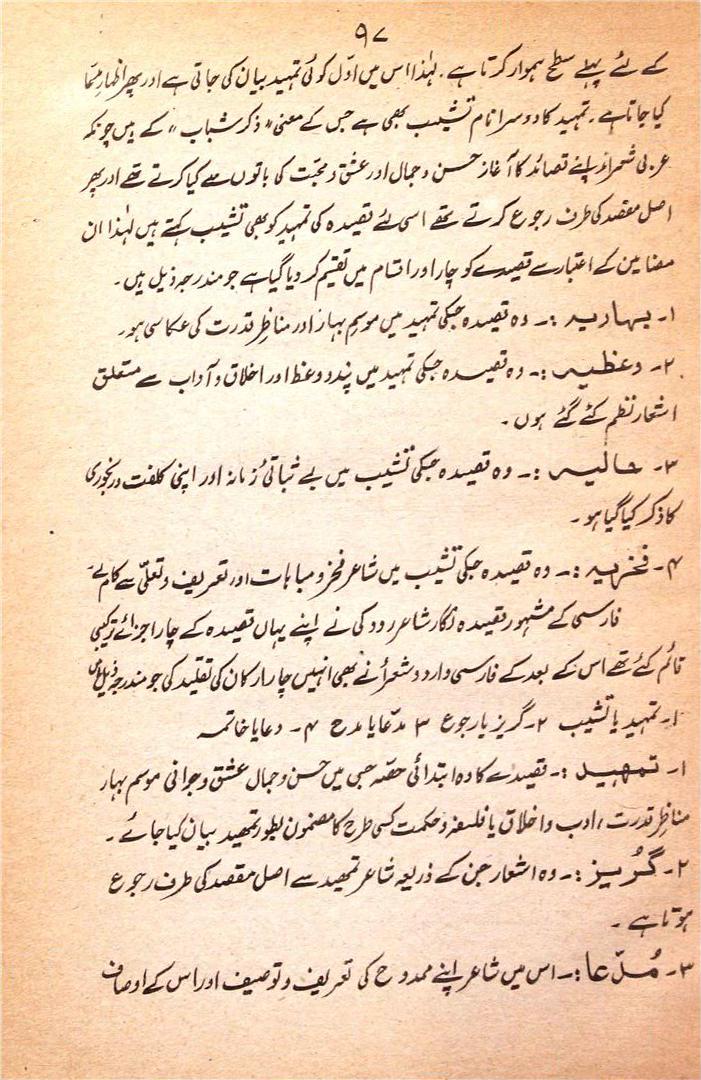 ۹۷
کے لئے پہلے سطح ہموار کرتا ہے۔ لہٰذا اس میں اوّل کوئی تمہید بیان کی جاتی ہے اور پھر اظہارِ مدّعا
کیا جاتا ہے۔ تمہید کا دوسرا نام تشبیب بھی ہے جس کے معنی "ذکر شباب" کے ہیں چونکہ
عربی شعراء اپنے قصائد کا آغاز حسن و جمال اور عشق و محبت کی باتوں سے کیا کرتے تھے اور پھر
اصل مقصد کی طرف رجوع کرتے تھے اسی لئے قصیدہ کی تمہید کو بھی تشبیب کہتے ہیں لہٰذا ان
مضامین کے اعتبار سے قصیدے کو چار اور اقسام میں تقسیم کر دیا گیا ہے جو مندرجہ ذیل ہیں۔
۱۔ بہاریہ :۔ وہ قصیدہ جسکی تمہید میں موسمِ بہار اور مناظرِ قدرت کی عکاسی ہو۔
۲۔ وعظیہ :۔ وہ قصیدہ جسکی تمہید میں پند و وعظ اور اخلاق و آداب سے متعلق
اشعار نظم کئے گئے ہوں۔
۳۔ حالیہ :۔ وہ قصیدہ جسکی تشبیب میں بے ثباتیٔ زمانہ اور اپنی کلفت و رنجوری
کا ذکر کیا گیا ہو۔
۴۔ فخریہ :۔ وہ قصیدہ جسکی تشبیب میں شاعر فخر و مباہات اور تعریف و تعلّی سے کام لے۔
فارسی کے مشہور قصیدہ نگار شاعر رودکی نے اپنے یہاں قصیدہ کے چار اجزائے ترکیبی
قائم کئے تھے اس کے بعد کے فارسی و اردو شعرأ نے بھی انہیں چار ارکان کی تقلید کی جو مندرجہ ذیل ہیں
۱۔ تمہید یا تشبیب ۲۔ گریز یا رجوع ۳ مدّعا یا مدح ۴۔ دعا یا خاتمہ
۱۔ تمہید :۔ قصیدے کا وہ ابتدائی حصّہ جس میں حسن و جمال عشق و جوانی موسم بہار
مناظرِ قدرت، ادب و اخلاق یا فلسفہ و حکمت کسی طرح کا مضمون بطور تمھید بیان کیا جائے۔
۲۔ گُریز :۔ وہ اشعار جن کے ذریعہ شاعر تمھید سے اصل مقصد کی طرف رجوع
ہوتا ہے۔
۳۔ مُدّعا :۔ اس میں شاعر اپنے ممدوح کی تعریف و توصیف اور اس کے اوصاف